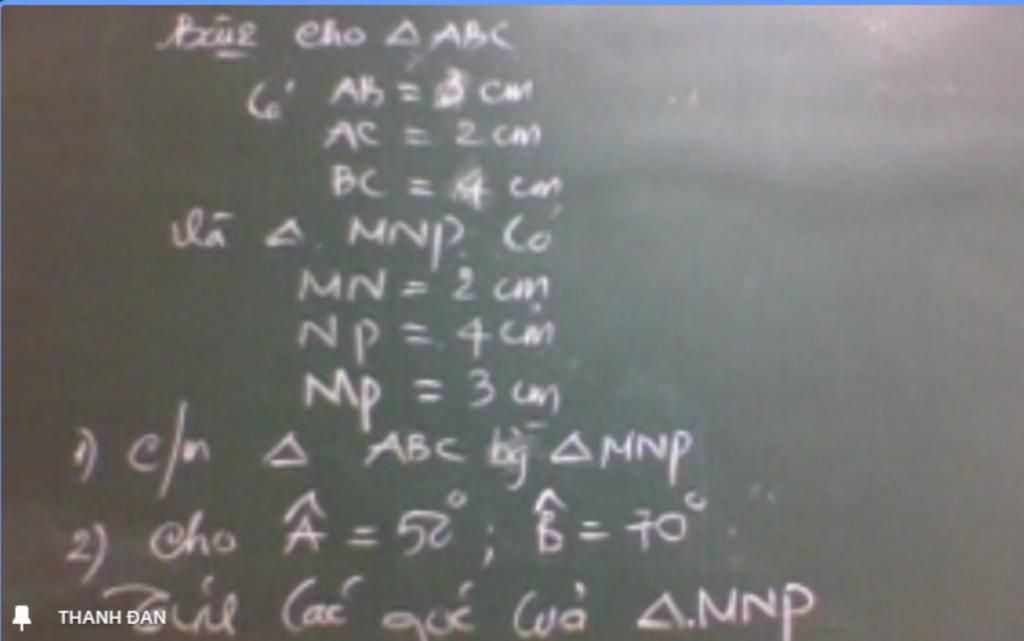 Bài 2 cho △ ABC
Có AB = 3 cm
AC = 2 cm
BC = 4 cm
và △ MNP. Có
MN = 2 cm
NP = 4 cm
MP = 3 cm
1) C/m △ ABC bg △ MNP
2) Cho Â = 50°; B̂ = 70°.
các góc của △.MNP
THANH ĐAN